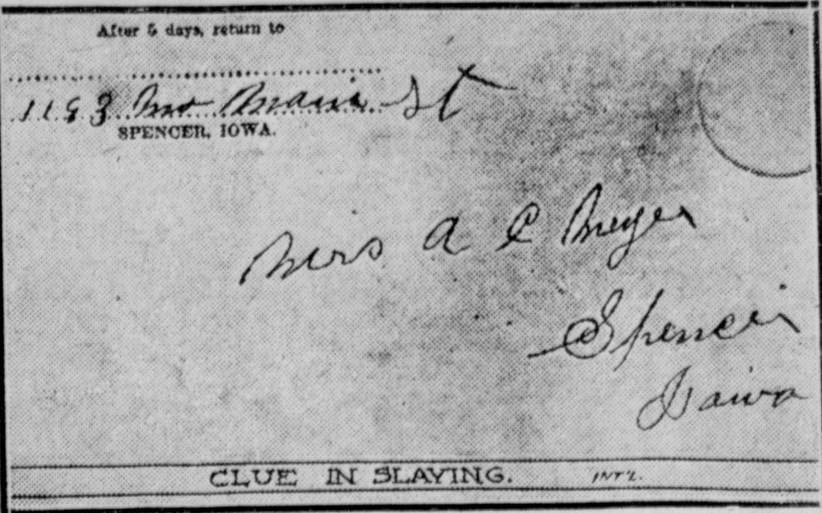 After 5 days, return to
1193 No Main St
SPENCER, IOWA.
Mrs A C Meyer
Spencer
Iowa
CLUE IN SLAYING. INT'L.